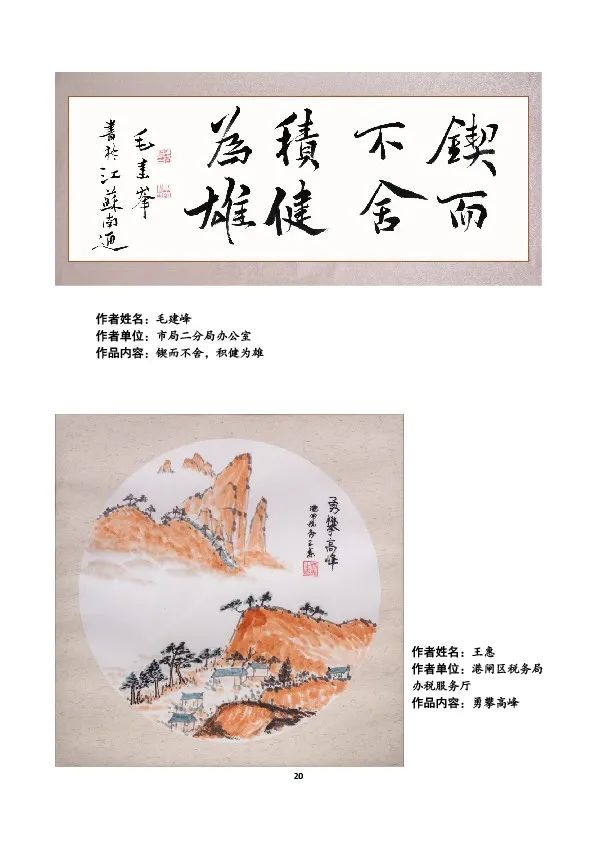 鍥而
不舍
積健
為雄
毛建峯
書於江蘇南通
作者姓名：毛建峰
作者单位：市局二分局办公室
作品内容：锲而不舍，积健为雄
勇攀高峰
港闸税务王惠
作者姓名：王惠
作者单位：港闸区税务局
办税服务厅
作品内容：勇攀高峰
20